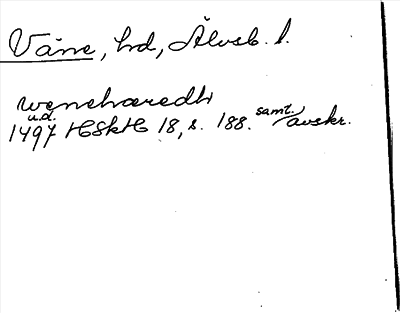 Väne, hd, Älvsb. l.
wenehæredh
u.d. samt.
1497 HSkH 18, s. 188. avskr.